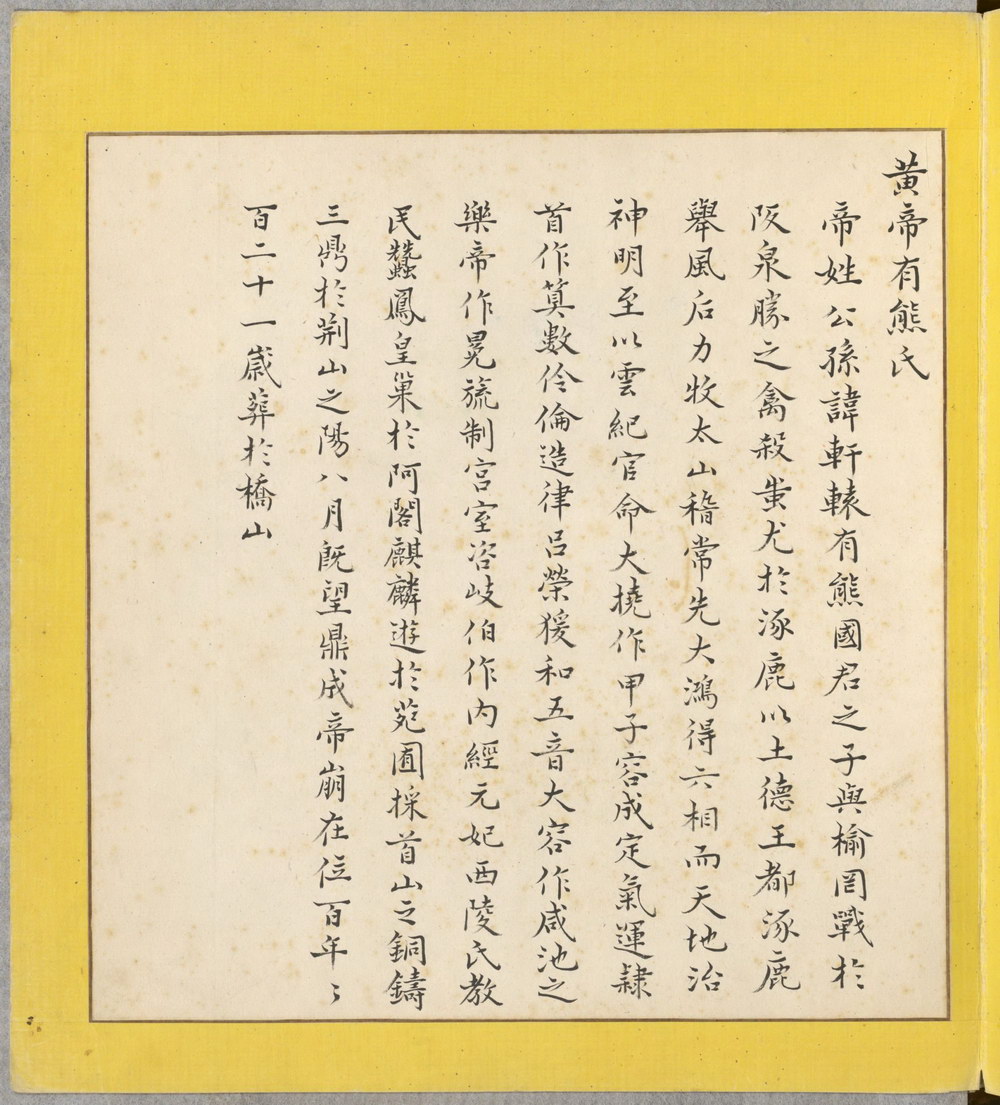 黃帝有熊氏
帝姓公孫諱軒轅有熊國君之子與榆罔戰於
阪泉勝之禽殺蚩尤於涿鹿以土德王都涿鹿
舉風后力牧太山稽常先大鴻得六相而天地治
神明至以雲紀官命大撓作甲子容成定氣運隸
首作算數伶倫造律呂榮猨和五音大容作咸池之
樂帝作冕旒制宮室咨岐伯作內經元妃西陵氏教
民蠶鳳皇巢於阿閣麒麟遊於苑囿採首山之銅鑄
三鼎於荆山之陽八月既望鼎成帝崩在位百年〻
百二十一歲葬於橋山